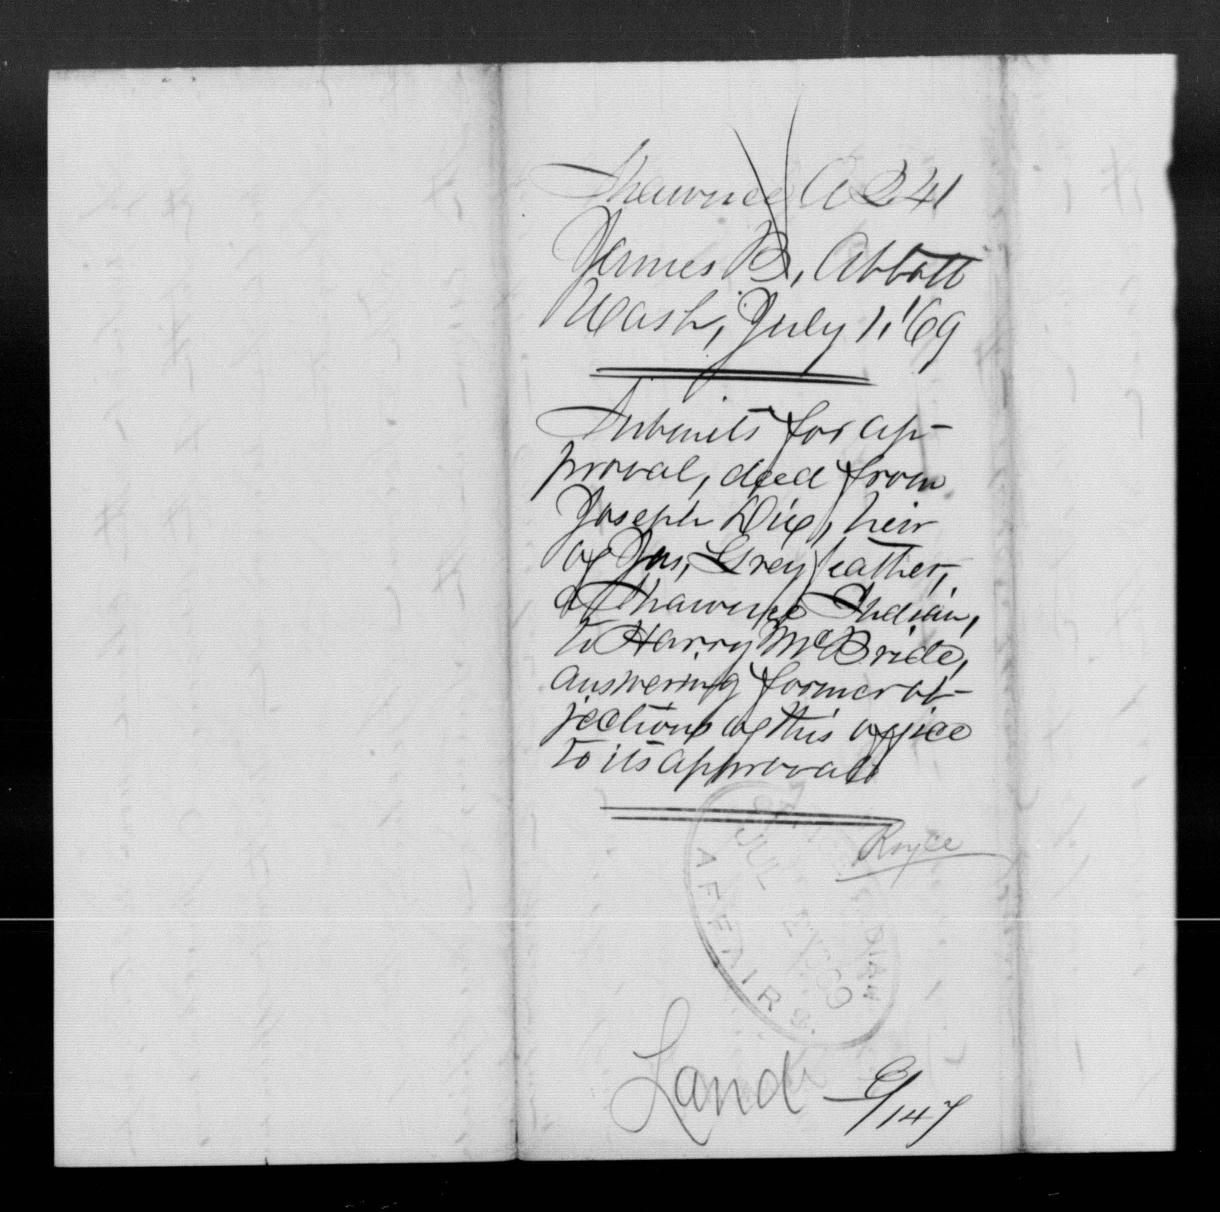 Shawnee A 241
James B. Abbott
Wash, July 1, '69
Submits for ap-
proval, deed from
Joseph Dix, heir
of Jas, Greyfeather,
a Shawnee Indian,
to Harry McBride,
answering former ob-
jections of this office
to its approval
Royce
JUL
69
INDIAN
AFFAIRS.
Land
/147